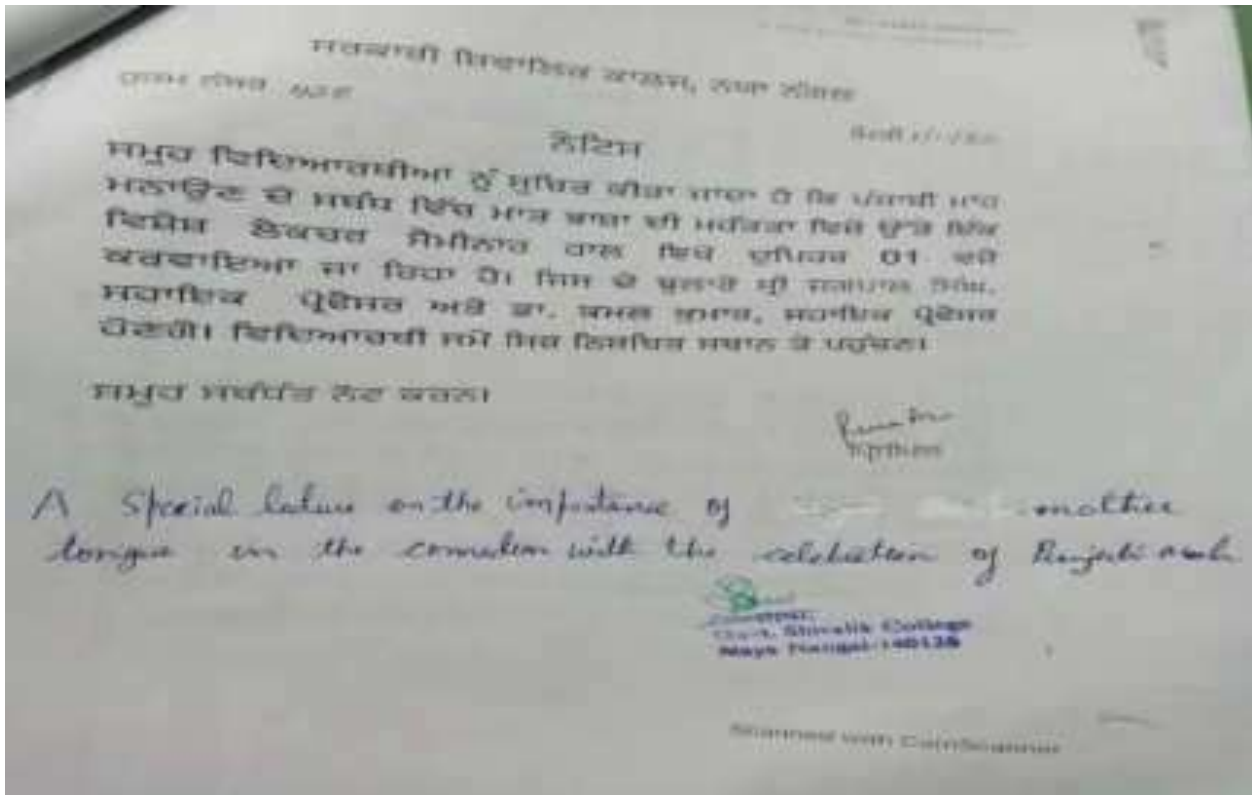 ਸਰਕਾਰੀ ਸ਼ਿਵਾਲਿਕ ਕਾਲਜ, ਨਯਾ ਨੰਗਲ
ਹੁਕਮ ਨੰਬਰ
ਨੋਟਿਸ
ਮਿਤੀ
ਸਮੂਹ ਵਿਦਿਆਰਥੀਆਂ ਨੂੰ ਸੂਚਿਤ ਕੀਤਾ ਜਾਂਦਾ ਹੈ ਕਿ ਪੰਜਾਬੀ ਮਾਹ
ਮਨਾਉਣ ਦੇ ਸਬੰਧ ਵਿੱਚ ਮਾਤ ਭਾਸ਼ਾ ਦੀ ਮਹੱਤਤਾ ਵਿਸ਼ੇ ਉੱਤੇ ਇੱਕ
ਵਿਸ਼ੇਸ਼ ਲੈਕਚਰ ਸੈਮੀਨਾਰ ਹਾਲ ਵਿਖੇ ਦੁਪਿਹਰ 01 ਵਜੇ
ਕਰਵਾਇਆ ਜਾ ਰਿਹਾ ਹੈ। ਜਿਸ ਦੇ ਬੁਲਾਰੇ ਸ੍ਰੀ ਸਿੰਘ,
ਸਹਾਇਕ ਪ੍ਰੋਫੈਸਰ ਅਤੇ ਡਾ. ਕਮਲ ਕੁਮਾਰ, ਸਹਾਇਕ ਪ੍ਰੋਫੈਸਰ
ਹੋਣਗੇ। ਵਿਦਿਆਰਥੀ ਸਮੇਂ ਸਿਰ ਨਿਸ਼ਚਿਤ ਸਥਾਨ ਤੇ ਪਹੁੰਚਣ।
ਸਮੂਹ ਸਬੰਧਤ ਨੋਟ ਕਰਨ।
ਪ੍ਰਿੰਸੀਪਲ
A Special lecture on the importance of mother
tongue in the connection with the celebration of Punjabi
Govt. Shivalik College
Naya Nangal-140126
Scanned with CamScanner